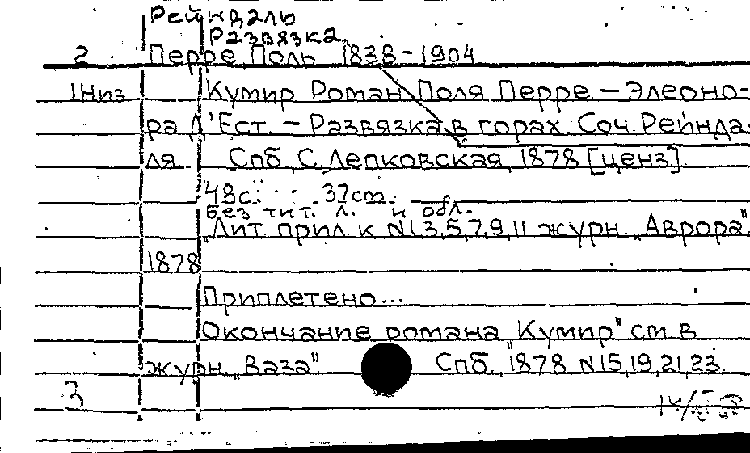 Рейндаль
Развязка
2 Перре Поль 1838-1904
1Низ Кумир Роман Поля Перре – Элеоно-
ра Л'Ест. – Развязка в горах. Соч. Рейнда-
ля Спб С. Лепковская, 1878 [ценз].
48с. 37cm.
Без тит. л. и обл.
„Лит прил к N 1,3,5,7,9,11 журн „Аврора"
1878
Приплетено...
Окончание романа „Кумир" см в
журн „Ваза" Спб, 1878 N15,19,21,23.
3